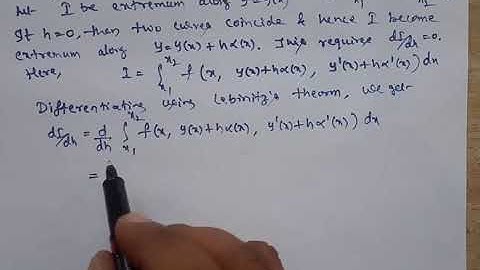 Let I be extremum along y=y(x)
If h=0, then two curves coincide & hence I become
extremum along y=y(x)+hα(x). This requires dI/dh=0.
Here, I = ∫_{x₁}^{x₂} f(x, y(x)+hα(x), y'(x)+hα'(x)) dx
Differentiating using Lebinitz's theorm, we get-
dI/dh = d/dh ∫_{x₁}^{x₂} f(x, y(x)+hα(x), y'(x)+hα'(x)) dx
=